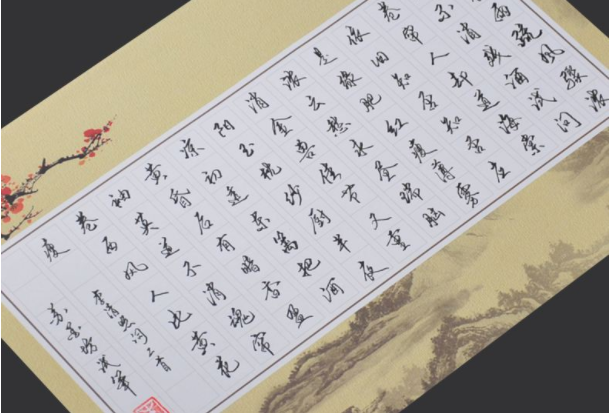 雨疏风骤浓
消残酒试问
卷帘人却道海棠
依旧知否知否应
是绿肥红瘦薄雾
浓云愁永昼瑞脑
消金兽佳节又重
阳玉枕纱厨半夜
凉初透东篱把酒
黄昏后有暗香盈
袖莫道不消魂帘
卷西风人比黄花
瘦
李清照词二首
墨坊试笔